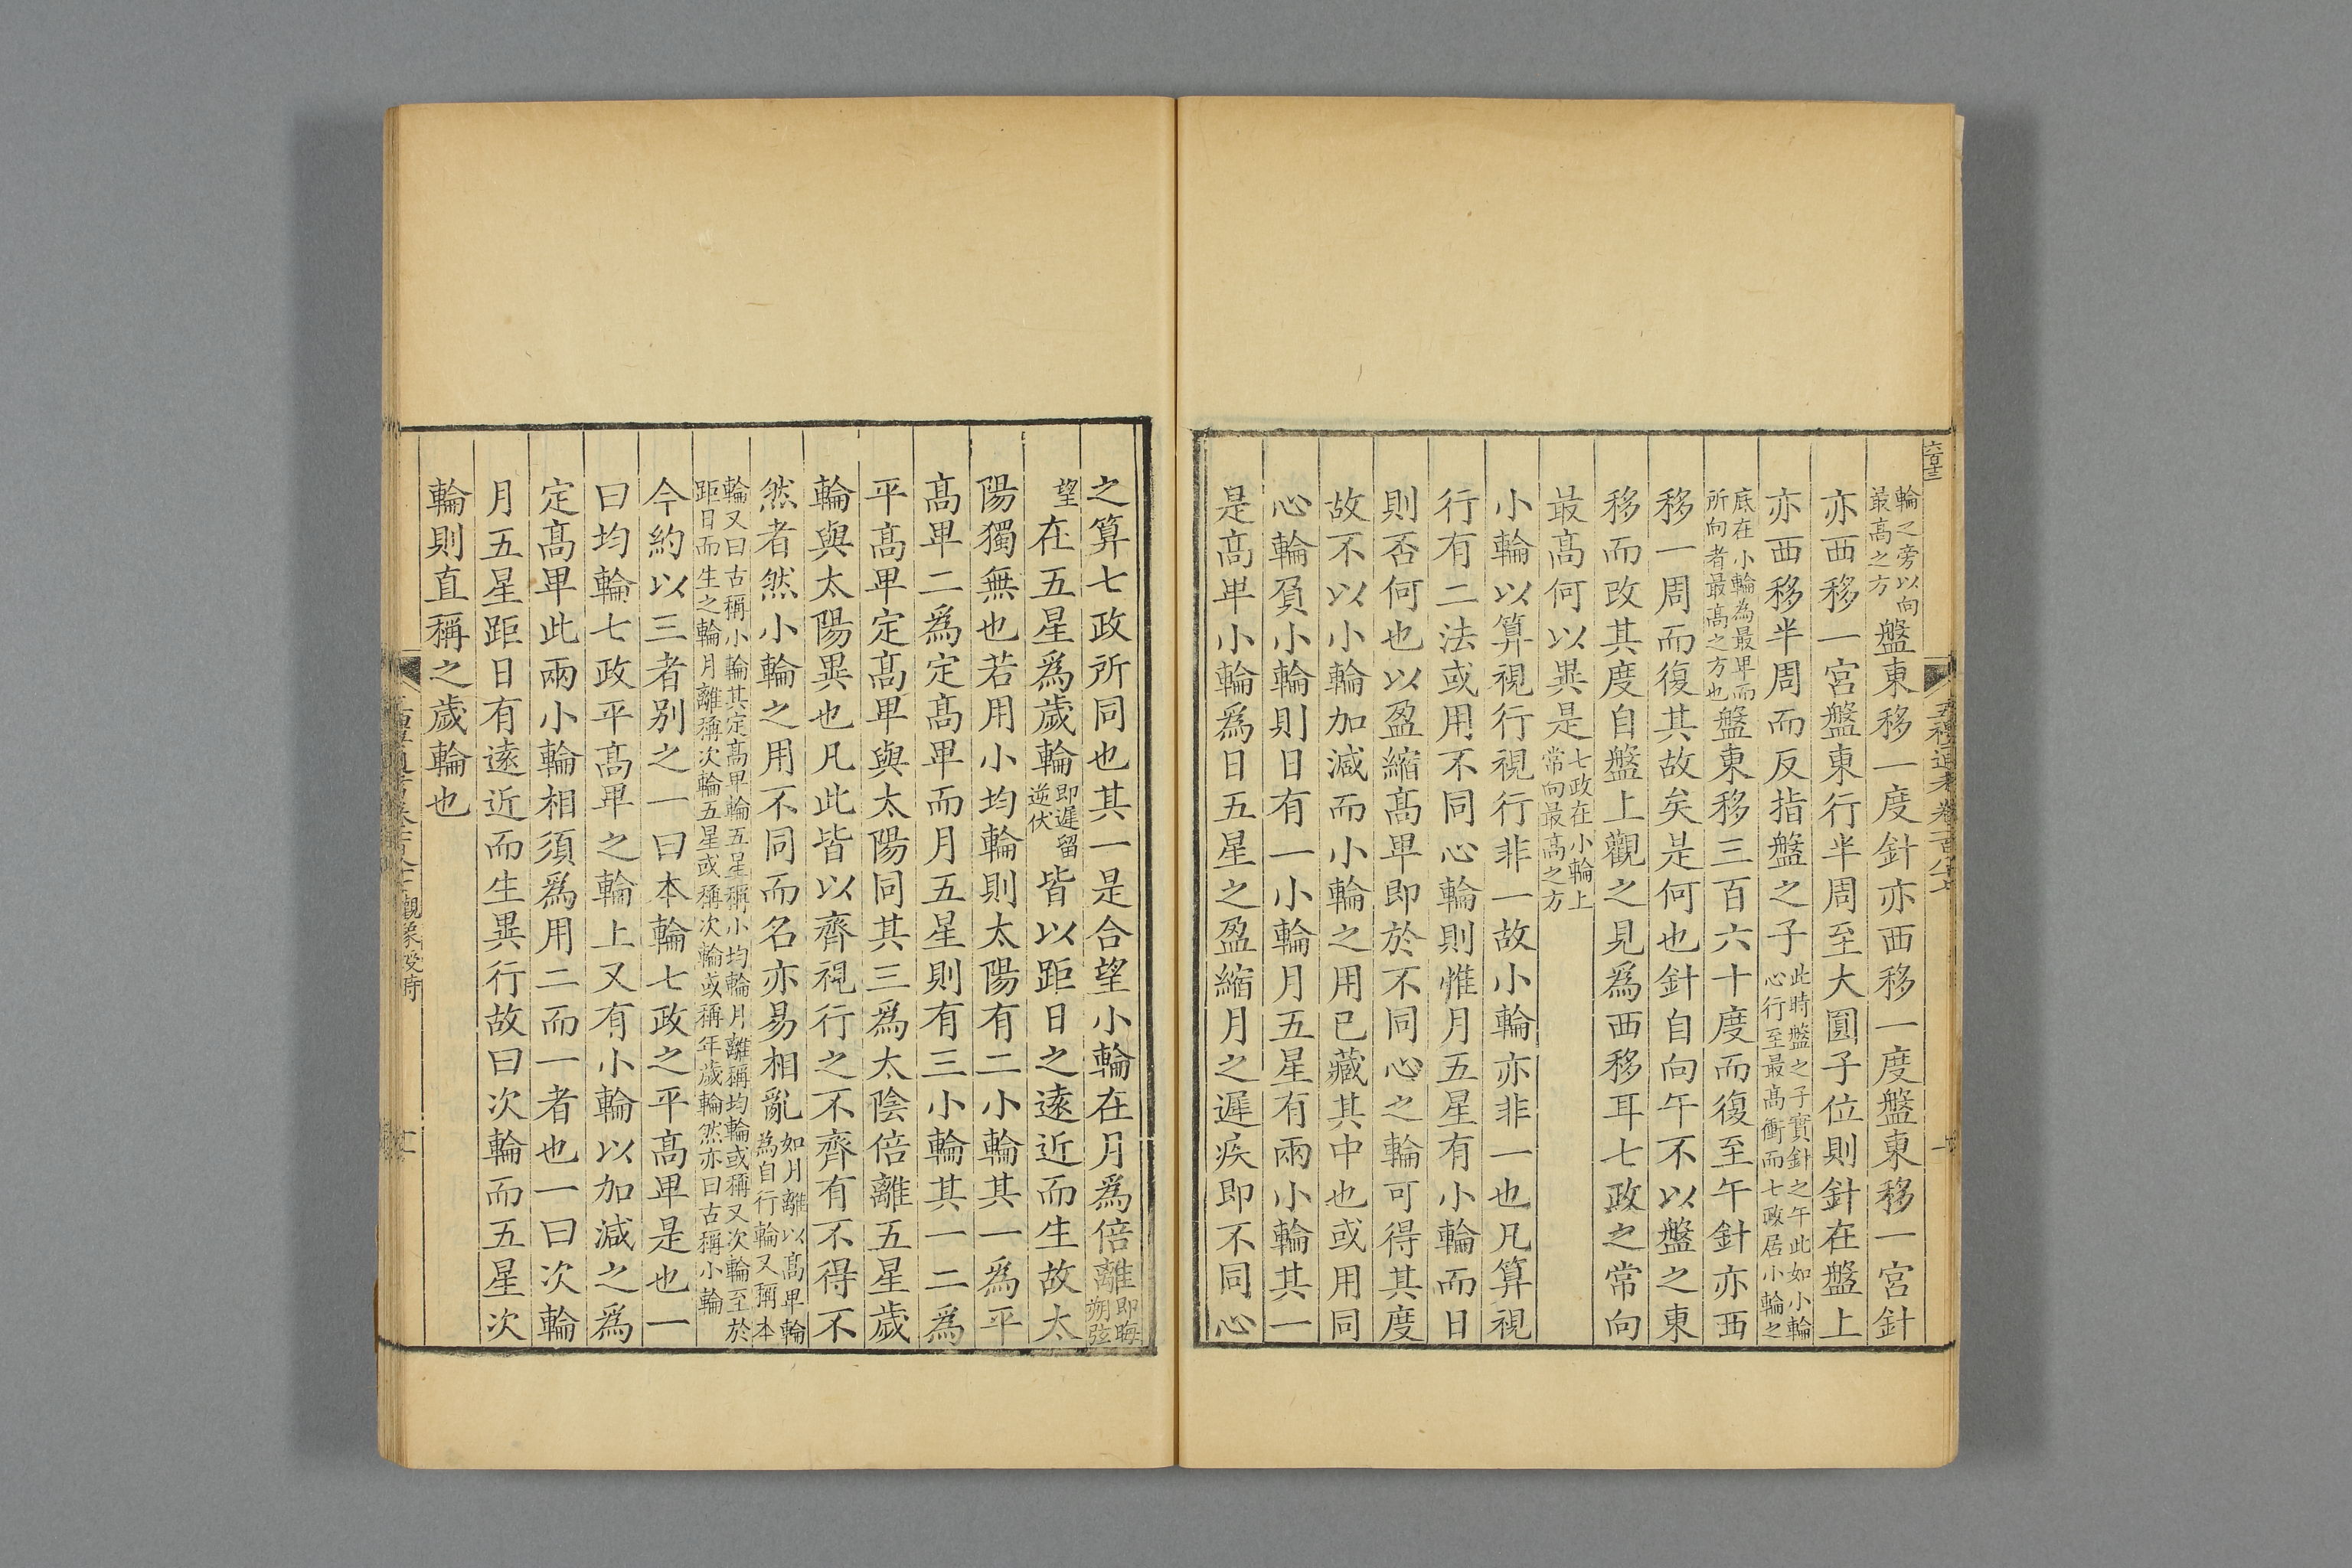 六百十三
輪之旁以向最髙之方盤東移一度針亦西移一度盤東移一宮針
亦西移一宮盤東行半周至大圓子位則針在盤上
亦西移半周而反指盤之子此時盤之子實針之午此如小輪心行至最髙衝而七政居小輪之
底在小輪為最𤰞而所向者最髙之方也盤東移三百六十度而復至午針亦西
移一周而復其故矣是何也針自向午不以盤之東
移而改其度自盤上觀之見爲西移耳七政之常向
最髙何以異是七政在小輪上常向最髙之方
小輪以算視行視行非一故小輪亦非一也凡算視
行有二法或用不同心輪則惟月五星有小輪而日
則否何也以盈縮髙𤰞即於不同心之輪可得其度
故不以小輪加減而小輪之用已藏其中也或用同
心輪負小輪則日有一小輪月五星有兩小輪其一
是髙𤰞小輪爲日五星之盈縮月之遲疾即不同心
之算七政所同也其一是合望小輪在月爲倍離即晦朔弦
望在五星爲歲輪即遲留逆伏皆以距日之遠近而生故太
陽獨無也若用小均輪則太陽有二小輪其一爲平
髙𤰞二爲定髙𤰞而月五星則有三小輪其一二爲
平髙𤰞定髙𤰞與太陽同其三爲太陰倍離五星歲
輪與太陽異也凡此皆以齊視行之不齊有不得不
然者然小輪之用不同而名亦易相亂如月離以髙𤰞輪為自行輪又稱本
輪又曰古稱小輪其定髙𤰞輪五星稱小均輪月離稱均輪或稱又次輪至於距日而生之輪月離稱次輪五星或稱次輪或稱年歲輪然亦曰古稱小輪
今約以三者别之一曰本輪七政之平髙𤰞是也一
曰均輪七政平髙𤰞之輪上又有小輪以加減之爲
定髙𤰞此兩小輪相須爲用二而一者也一曰次輪
月五星距日有遠近而生異行故曰次輪而五星次
輪則直稱之歲輪也
觀象授時